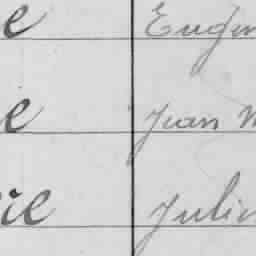 e Eugèn
e Jean M
ie Julie